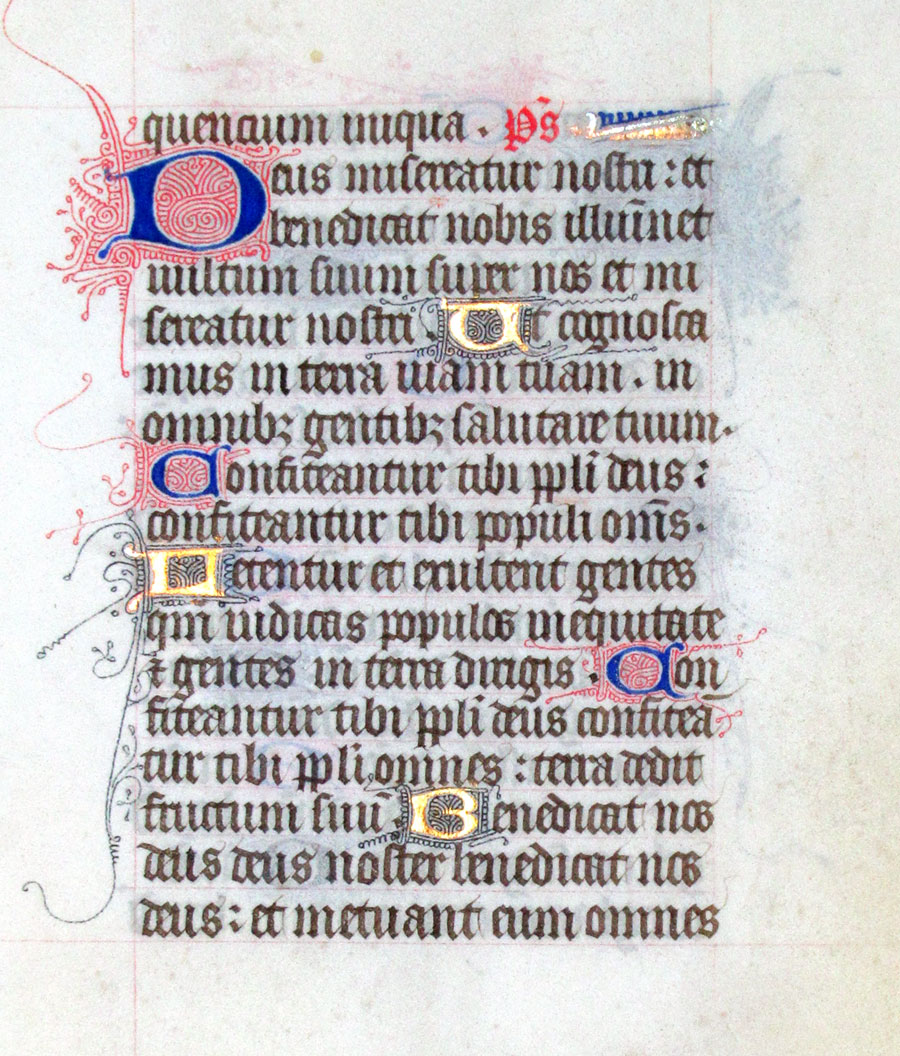 quencium iniqua . p̄s
Deus misereatur nostri : et
benedicat nobis illuīnet
vultum suum super nos et mi
sereatur nostri . Ut cognosca
mus in terra viam tuam . in
omnibꝫ gentibꝫ salutare tuum .
Confiteantur tibi ppl̄i deus :
confiteantur tibi populi om̄s .
Letentur et exultent gentes
qm̄ iudicas populos inequitate
⁊ gentes in terra dirigis . Con
fiteantur tibi ppl̄i deus confitea
tur tibi ppl̄i omnes : terra dedit
fructum suū Benedicat nos
deus deus noster benedicat nos
deus : et metuant eum omnes